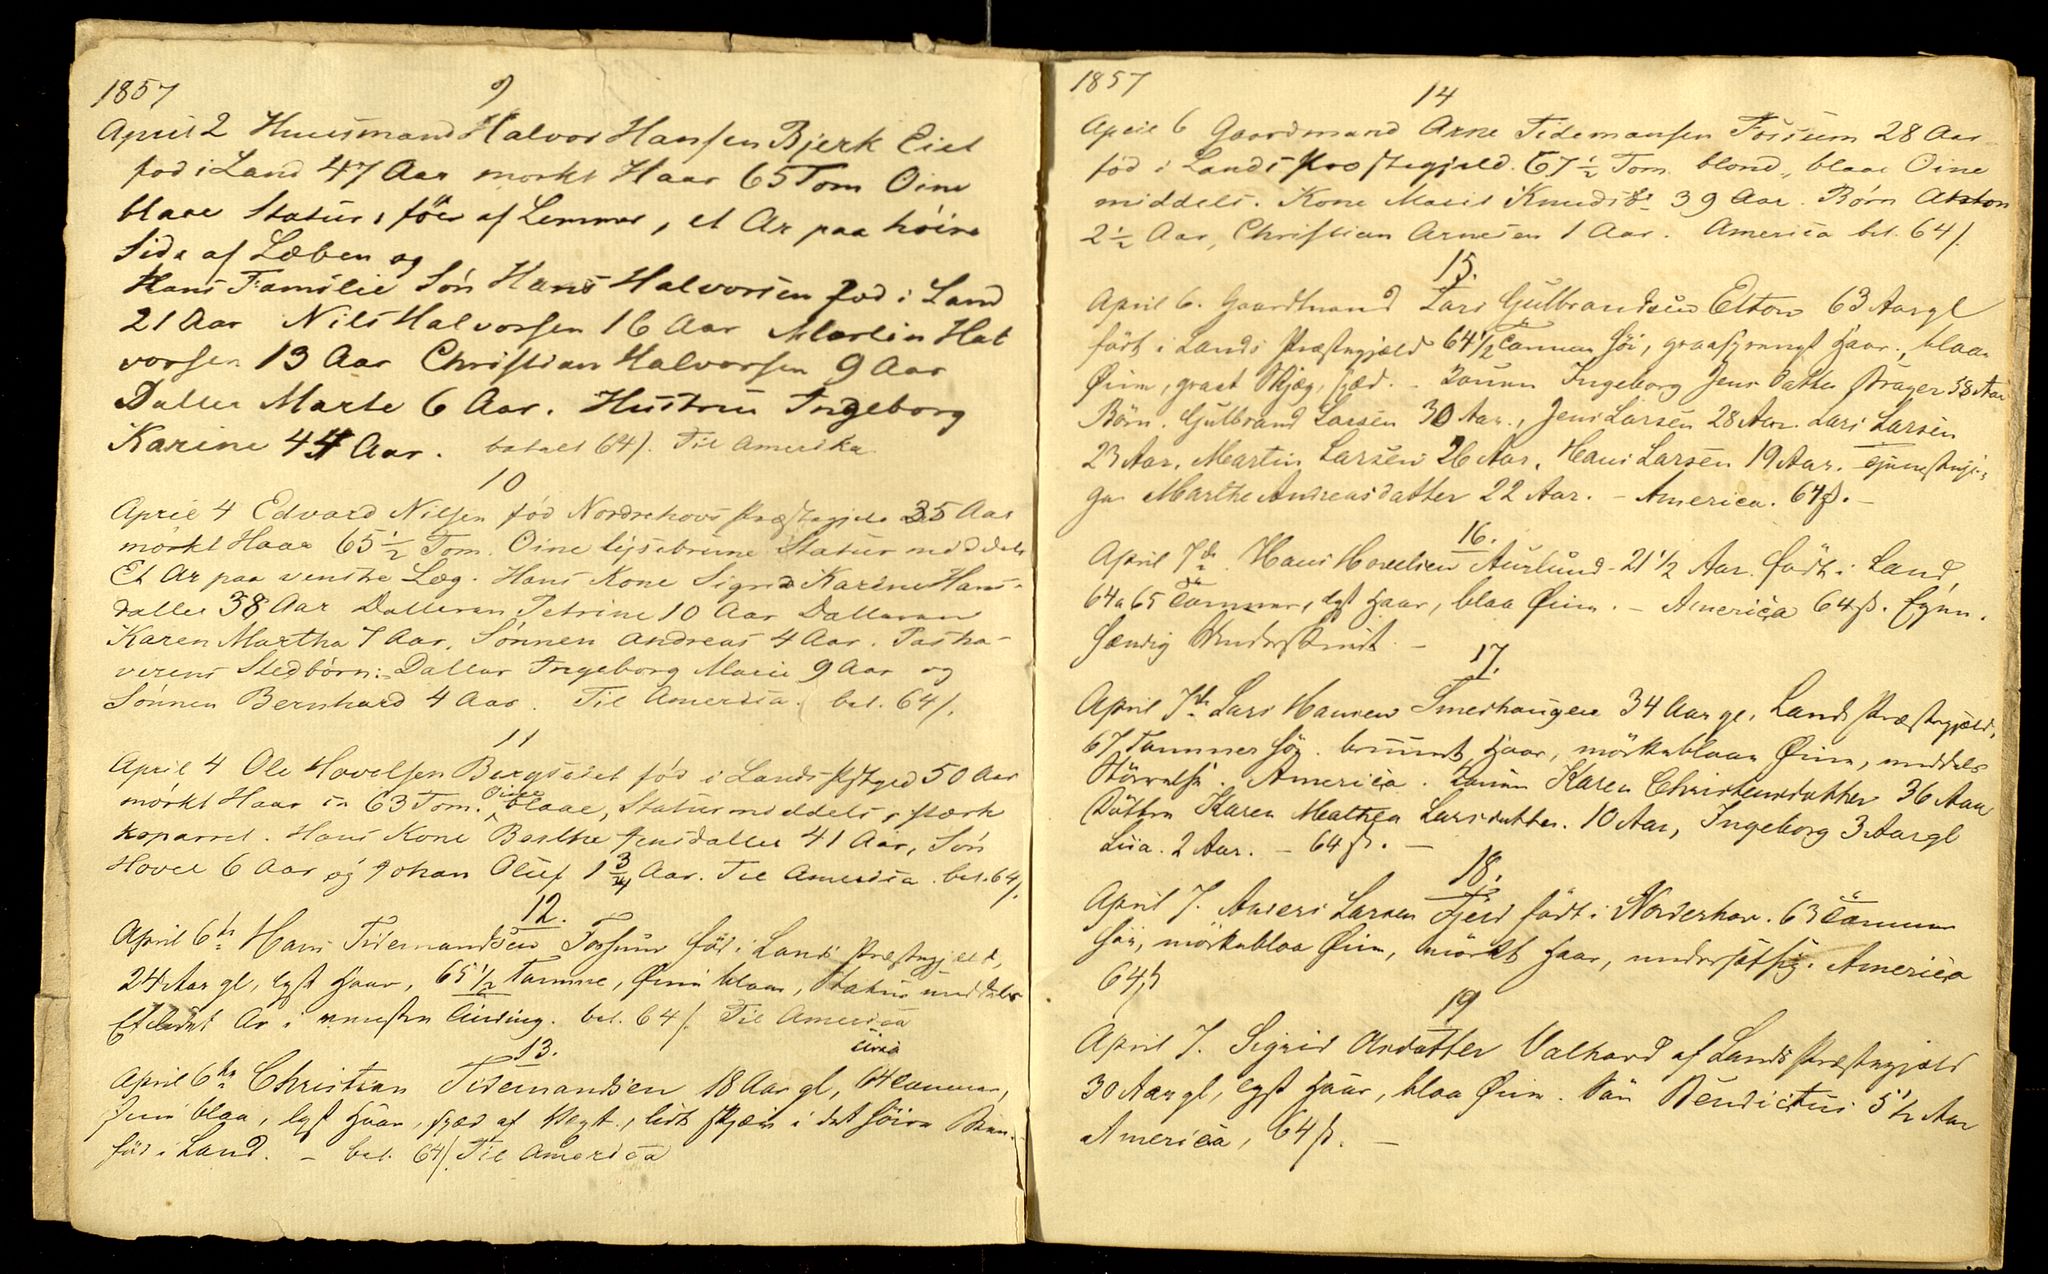 1857
9
April 2 Huusmand Halvor Hansen Bjerk Eiet
fød i Land 47 Aar mørkt Haar 65 Tom Øine
blaae Statur, føer af Lemmer, et Ar paa høire
Side af Læben og
Hans Familie Søn Hans Halvorsen fød i Land
21 Aar Nils Halvorsen 16 Aar Martin Hal
vorsen 13 Aar Christian Halvorsen 9 Aar
Datter Marte 6 Aar. Hustrue Ingeborg
Karine 44 Aar. betalt 64 /. Til Amerika
10
April 4 Edvard Nilsen fød Nordrehovs Præstegjeld 35 Aar
mørkt Haar 65 1/2 Tom. Øine lysebrune Statur middels
Et Ar paa venstre Læg. Hans Kone Sigrid Karine Hans-
datter 38 Aar Datteren Petrine 10 Aar Datteren
Karen Martha 7 Aar, Sønnen Andreas 4 Aar. Pasha-
verens Stedbørn: Datter Ingeborg Marie 9 Aar og
Sønnen Bernhard 4 Aar. Til America. bet. 64 /.
11
April 4 Ole Hovelsen Bergseiet fød i Lands Pstgjed 50 Aar
mørkt Haar ca 63 Tom. Øine blaae, Statur middels, stærk
koparret. Hans Kone Berthe Jensdatter 41 Aar, Søn
Hovel 6 Aar og Johan Oluf 1 3/4 Aar. Til America. bet. 64 /.
12.
April 6te Hans Tidemandsen Fossum fød i Lands Præstegjæld,
24 Aar gl, lyst Haar, 65 1/2 Tomme, Øine blaae, Statur middels
Et Ar i venstre bet. 64 /. Til America
13.
April 6te Christian Tidemandsen 18 Aar gl, circa 64 Tommer,
Øine blaa, lyst Haar, spæd af Vext, lidt i det høire
fød i Land. – bet. 64 /. Til America
1857
14
April 6 Gaardmand Arne Tidemansen Fossum 28 Aar
fød i Lands Præstegjeld. 67 1/2 Tom. blond, blaae Øine
middels. Kone Marit Knudsdr 39 Aar. Børn
2 1/2 Aar, Christian Arnesen 1 Aar. America bet. 64 /.
15.
April 6. Gaardmand Lars Gulbrandsen Elton 63 Aar gl
født i Lands Præstegjæld 64 1/2 Tommer høi, graasprængt Haar, blaae
Øine, graat Skjæg, Konen Ingeborg Jens Datter 58 Aar
Børn. Gulbrand Larsen 30 Aar, Jens Larsen 28 Aar. Lars Larsen
23 Aar. Martin Larsen 26 Aar. Hans Larsen 19 Aar. Tjenestepi-
ge Marthe Andreasdatter 22 Aar. – America. 64 ß. –
16.
April 7de. Hans Hovelsen Aurlund – 21 1/2 Aar. født i Land,
64 a 65 Tommer, lyst Haar, blaa Øine. – America 64 ß. Egen-
hændig Underskrift. –
17.
April 7de Lars Hansen Smedhaugen 34 Aar gl. Lands Præstegjæld,
67 Tommer høy. bruunt Haar, mørkeblaae Øine, middels
Størrelse. America. Konen Karen Christensdatter 36 Aar
Døttre Karen Mathea Larsdatter. 10 Aar, Ingeborg 3 Aar gl
Lisa. 2 Aar. – 64 ß. –
18.
April 7. Anders Larsen Fjeld født i Norderhov. 63 Tommer
høi, mørkeblaa Øine, mørkt Haar, undersætsig. America
64 ß
19
April 7. Sigrid Olsdatter Valhovd af Lands Præstegjæld
30 Aar gl, lyst Haar, blaa Øine. Søn Bendictus 5 1/2 Aar
America, 64 ß. –